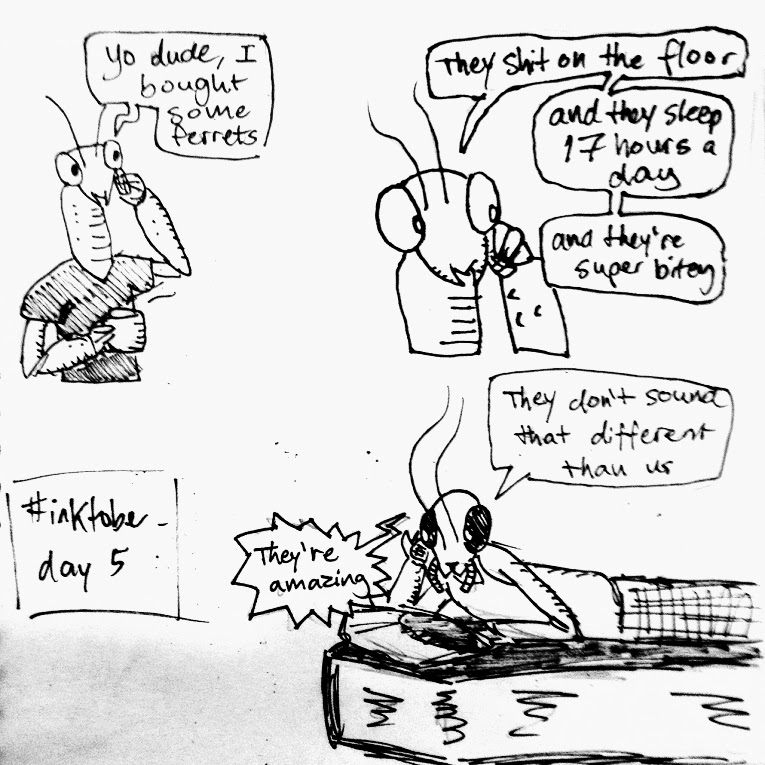 Yo dude, I
bought
some
ferrets
They shit on the floor
and they sleep
17 hours a
day
and they're
super bitey
They don't sound
that different
than us
They're
amazing
#inktober
day 5